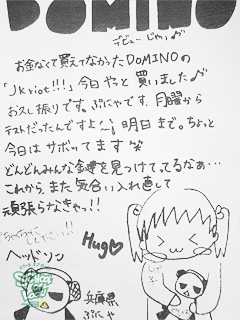 DOMINO
デビューじゃん♪
お金なくて買えてなかったDOMINOの
「JK riot!!!」今日やっと買いました♪
お久し振りです。ぷにゃです。月曜から
テストだったんですよ〜! 明日まで。ちょっと
今日はサボってます
どんどんみんな金鍵を見つけてってるなぁ…
これからまた気合い入れ直して
頑張らなきゃっ!!
Hug♡
ヘッドソン
兵庫県
ぷにゃ